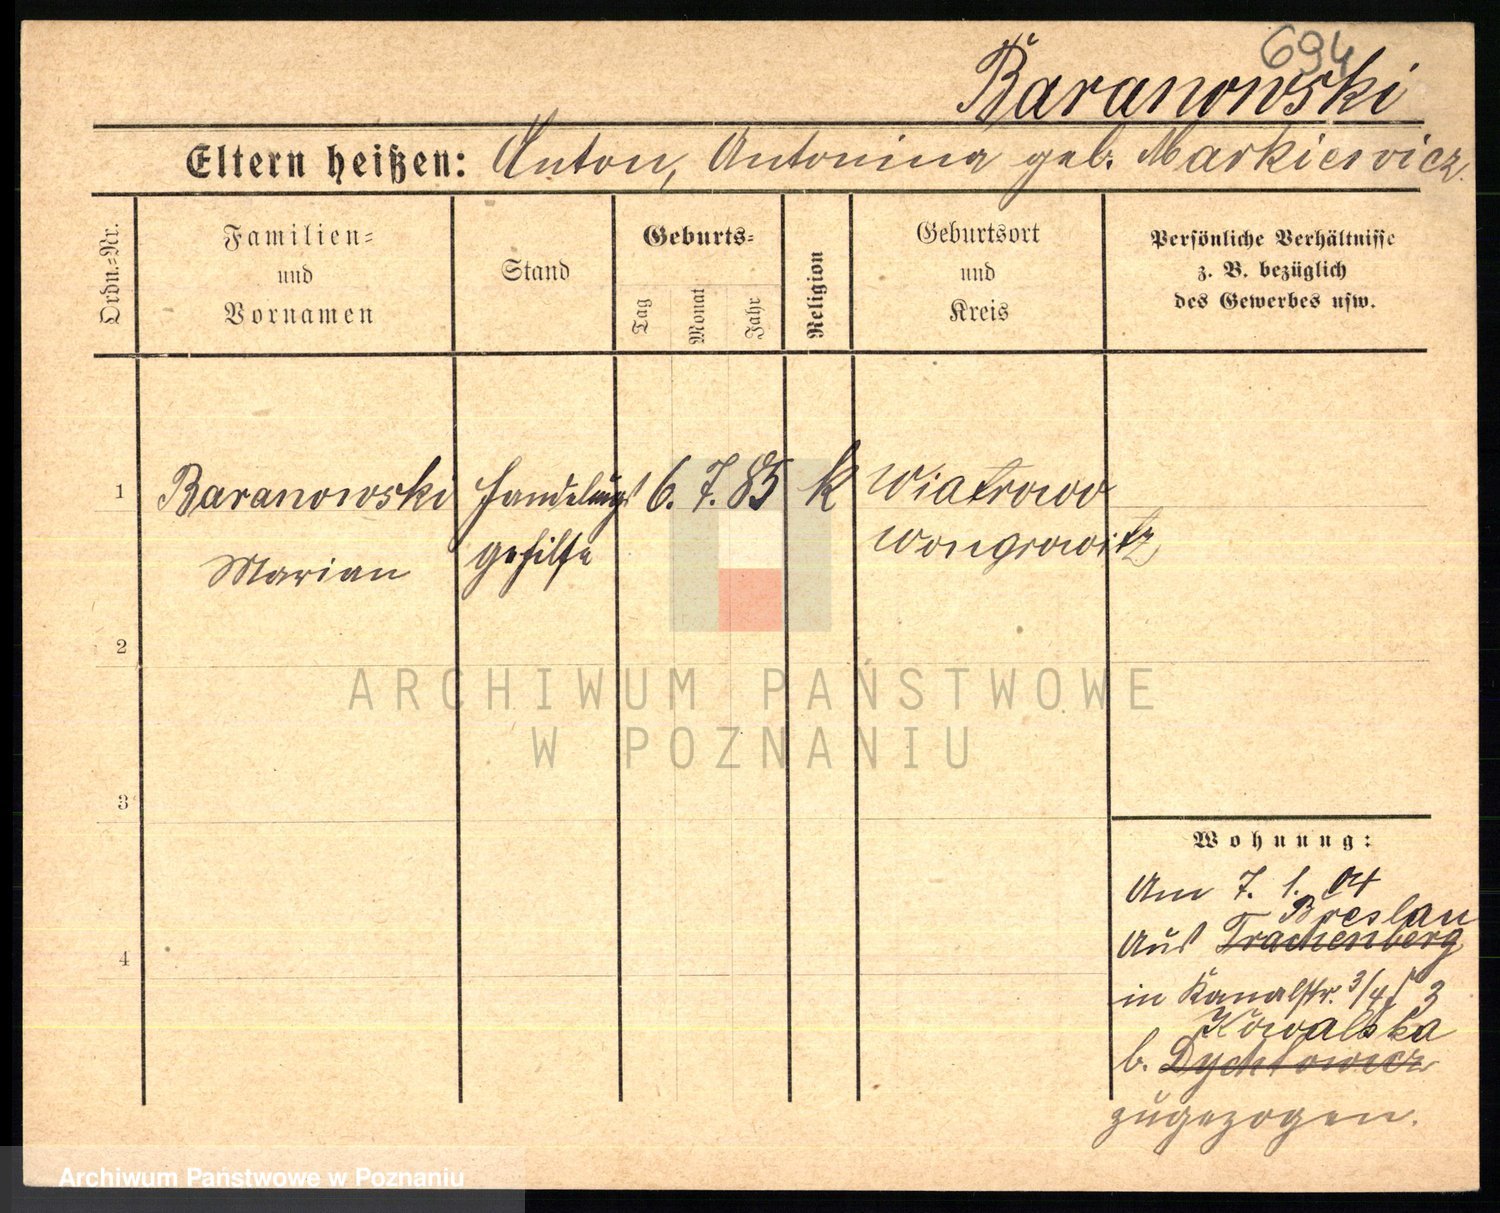 694
Baranowski
Eltern heißen: Anton, Antonina geb. Markiewicz.
Ordn.=Nr.
Familien=
und
Vornamen
Stand
Geburts=
Tag
Monat
Jahr
Religion
Geburtsort
und
Kreis
Persönliche Verhältnisse
z. B. bezüglich
des Gewerbes usw.
1 Baranowski Handelungs 6. 7. 85 k Wiatrowo
Marian gehilfe Wongrowitz
2
3
4
ARCHIWUM PAŃSTWOWE
W POZNANIU
Wohnung:
Am 7. 1. 04
Breslau
Aus Trachenberg
in Kanalstr. 3/4 3
Kowalska
b. Dychtowicz
zugezogen.
Archiwum Państwowe w Poznaniu